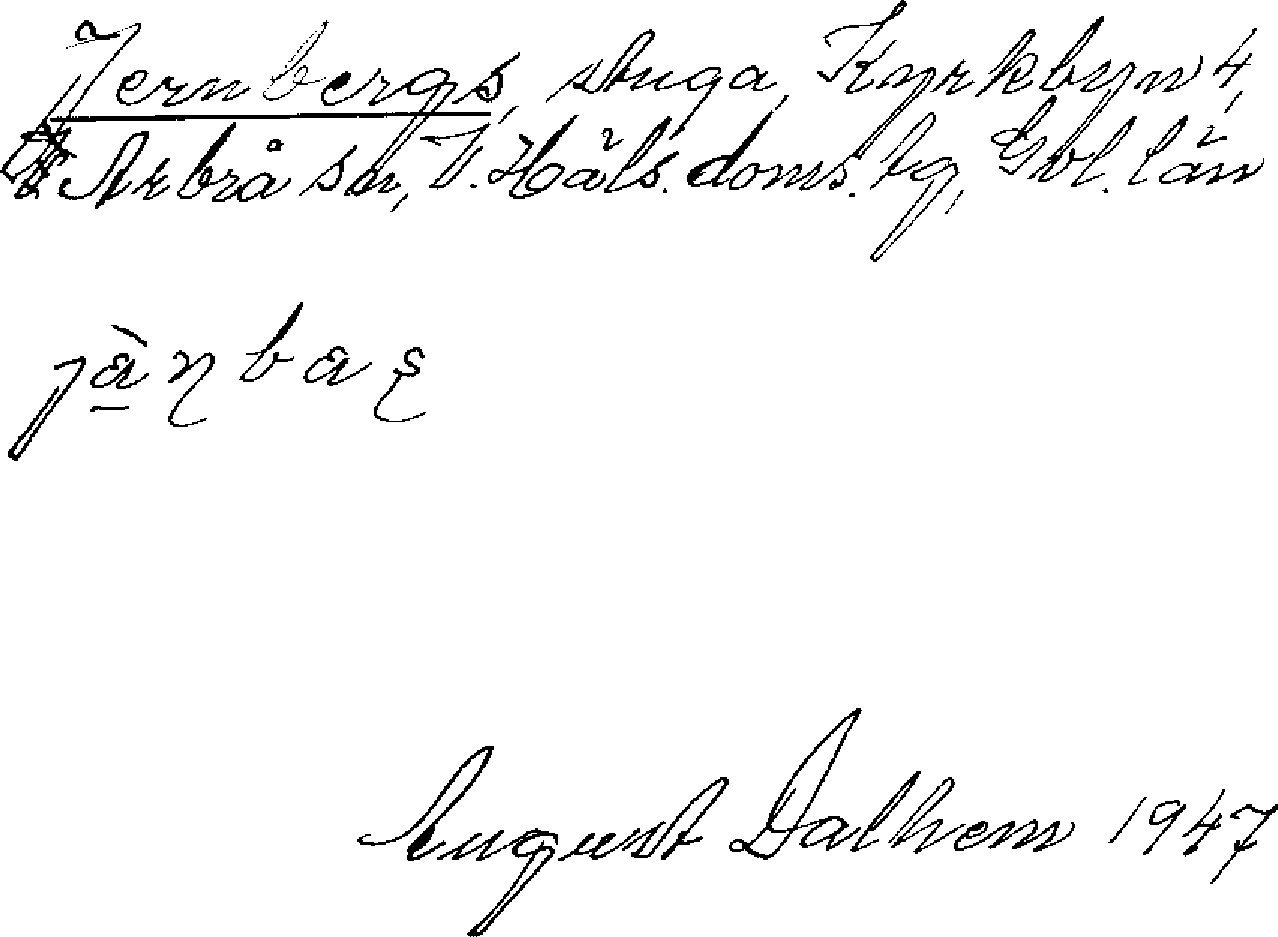 Jernbergs, stuga, Kyrkbyn 4,
Arbrå sn, V. Häls. doms. tg, Gvl. län
jæ̠̀ɳbaʂ
August Dalhem 1947